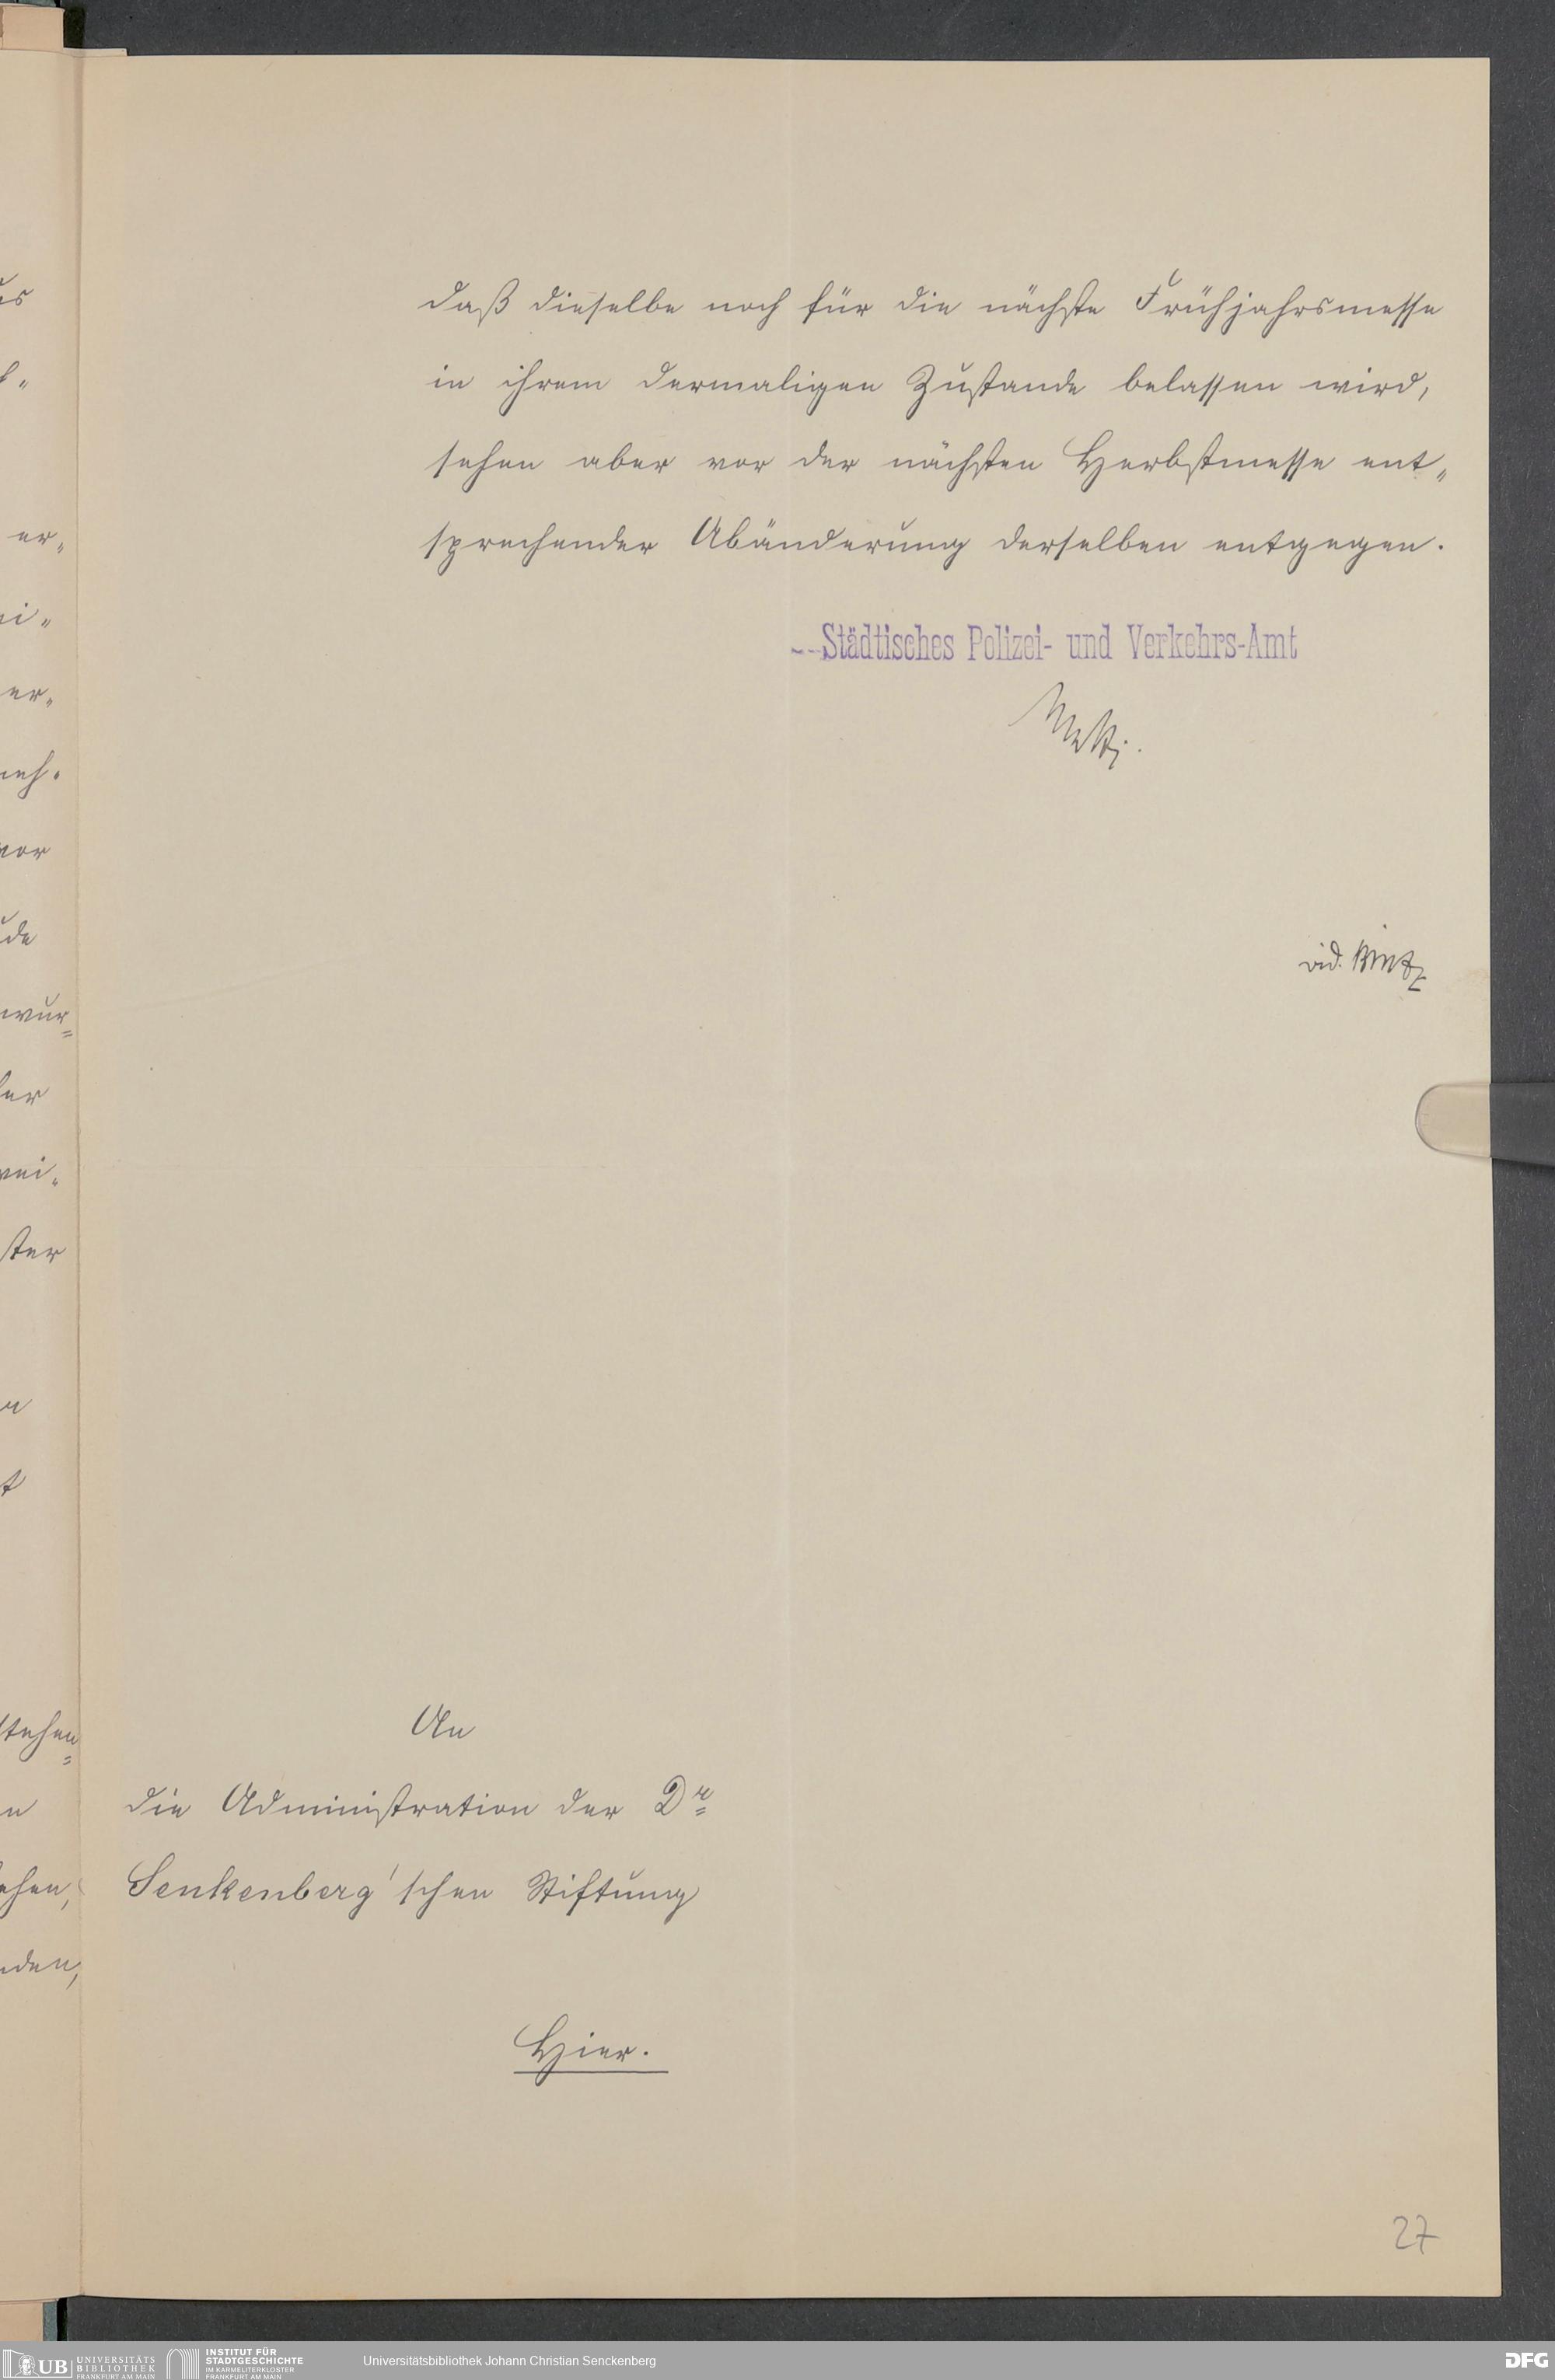 daß dieselbe noch für die nächste Frühjahrsmesse
in ihrem dermaligen Zustande belassen wird,
sehen aber vor der nächsten Herbstmesse ent„
sprechender Abänderung derselben entgegen.
Städtisches Polizei- und Verkehrs-Amt
vid.
An
die Administration der Dr
Senkenberg'schen Stiftung
Hier.
27
er„
er„
neh.
vor
wur=
ster
stehen=
UB UNIVERSITÄTS
BIBLIOTHEK
FRANKFURT AM MAIN
INSTITUT FÜR
STADTGESCHICHTE
IM KARMELITERKLOSTER
FRANKFURT AM MAIN
Universitätsbibliothek Johann Christian Senckenberg
DFG